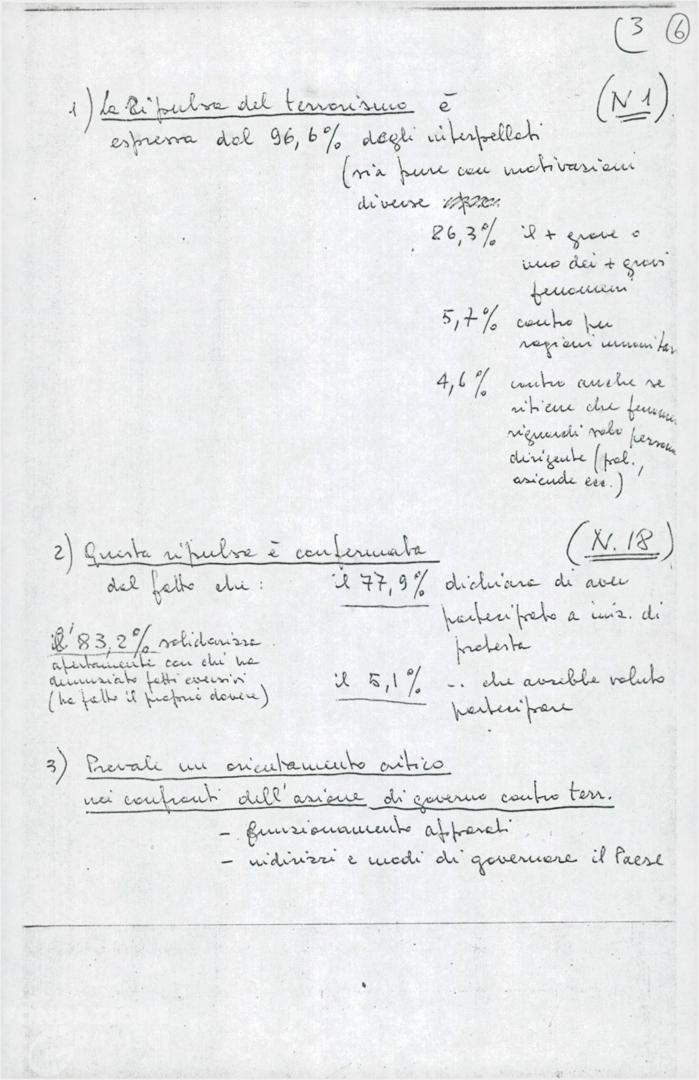 (3 6
1) La Ripulsa del terrorismo è (N 1)
espressa dal 96,6% degli interpellati
(sia pure con motivazioni
diverse
86,3% il + grave o
uno dei + gravi
fenomeni
5,7% contro per
ragioni umanitar
4,6% contro anche se
ritiene che fenom
riguardi solo person
dirigente (pol.,
aziende ecc.)
2) Questa ripulsa è confermata (N. 18)
dal fatto che: il 77,9% dichiara di aver
partecipato a iniz. di
protesta
l'83,2% solidarizza
apertamente con chi ha
denunciato fatti eversivi
(ha fatto il proprio dovere)
il 5,1% .. che avrebbe voluto
partecipare
3) Prevale un orientamento critico
nei confronti dell'azione di governo contro terr.
- funzionamento apparati
- indirizzi e modi di governare il Paese